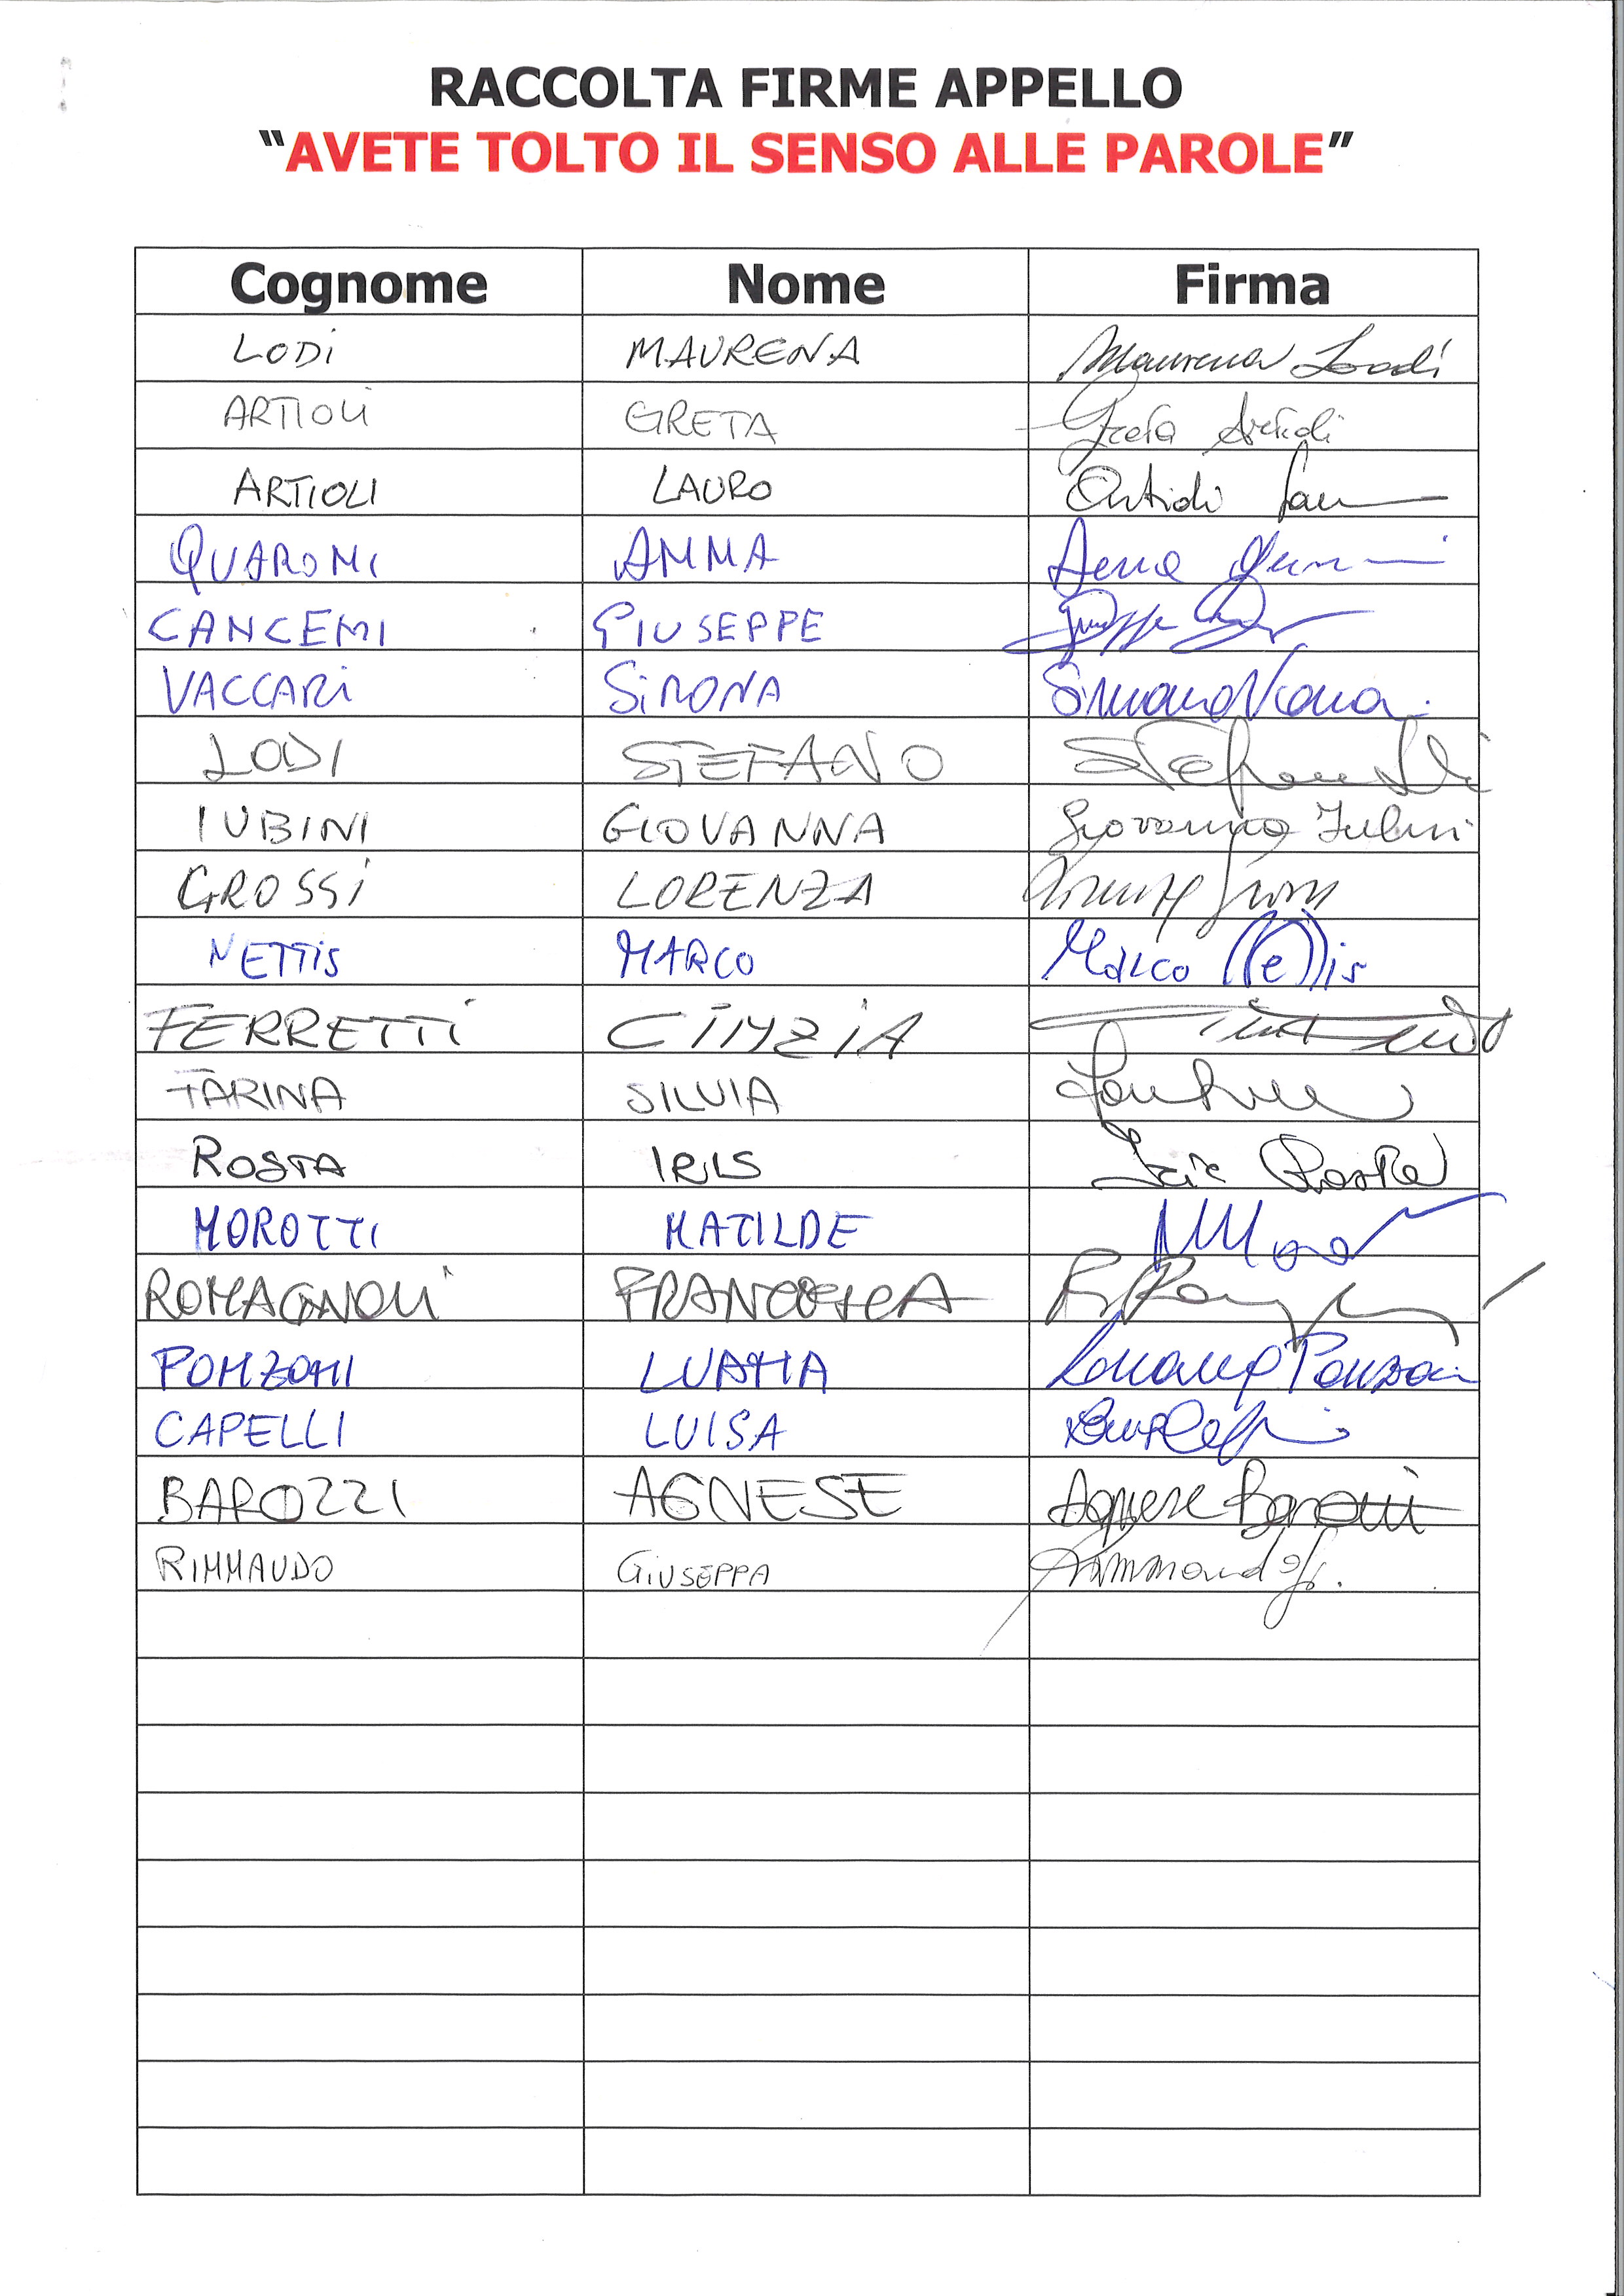 RACCOLTA FIRME APPELLO
“AVETE TOLTO IL SENSO ALLE PAROLE”
Cognome Nome Firma
LODI MAURENA Maurena Lodi
ARTIOLI GRETA Greta Artioli
ARTIOLI LAURO Artioli Lau
QUARONI ANNA Anna
CANCEMI GIUSEPPE Giuseppe
VACCARI SIMONA Simona
LODI STEFANO Stefano
IUBINI GIOVANNA Giovanna Iubini
GROSSI LORENZA Lorenza Grossi
NETTIS MARCO Marco Nettis
FERRETTI CINZIA
FARINA SILVIA
ROSTA IRIS Iris Rosta
MOROTTI MATILDE
ROMAGNOLI FRANCESCA
PONZONI LUANA Luana Ponzoni
CAPELLI LUISA
BAROZZI AGNESE Agnese Barozzi
RIMMAUDO GIUSEPPA